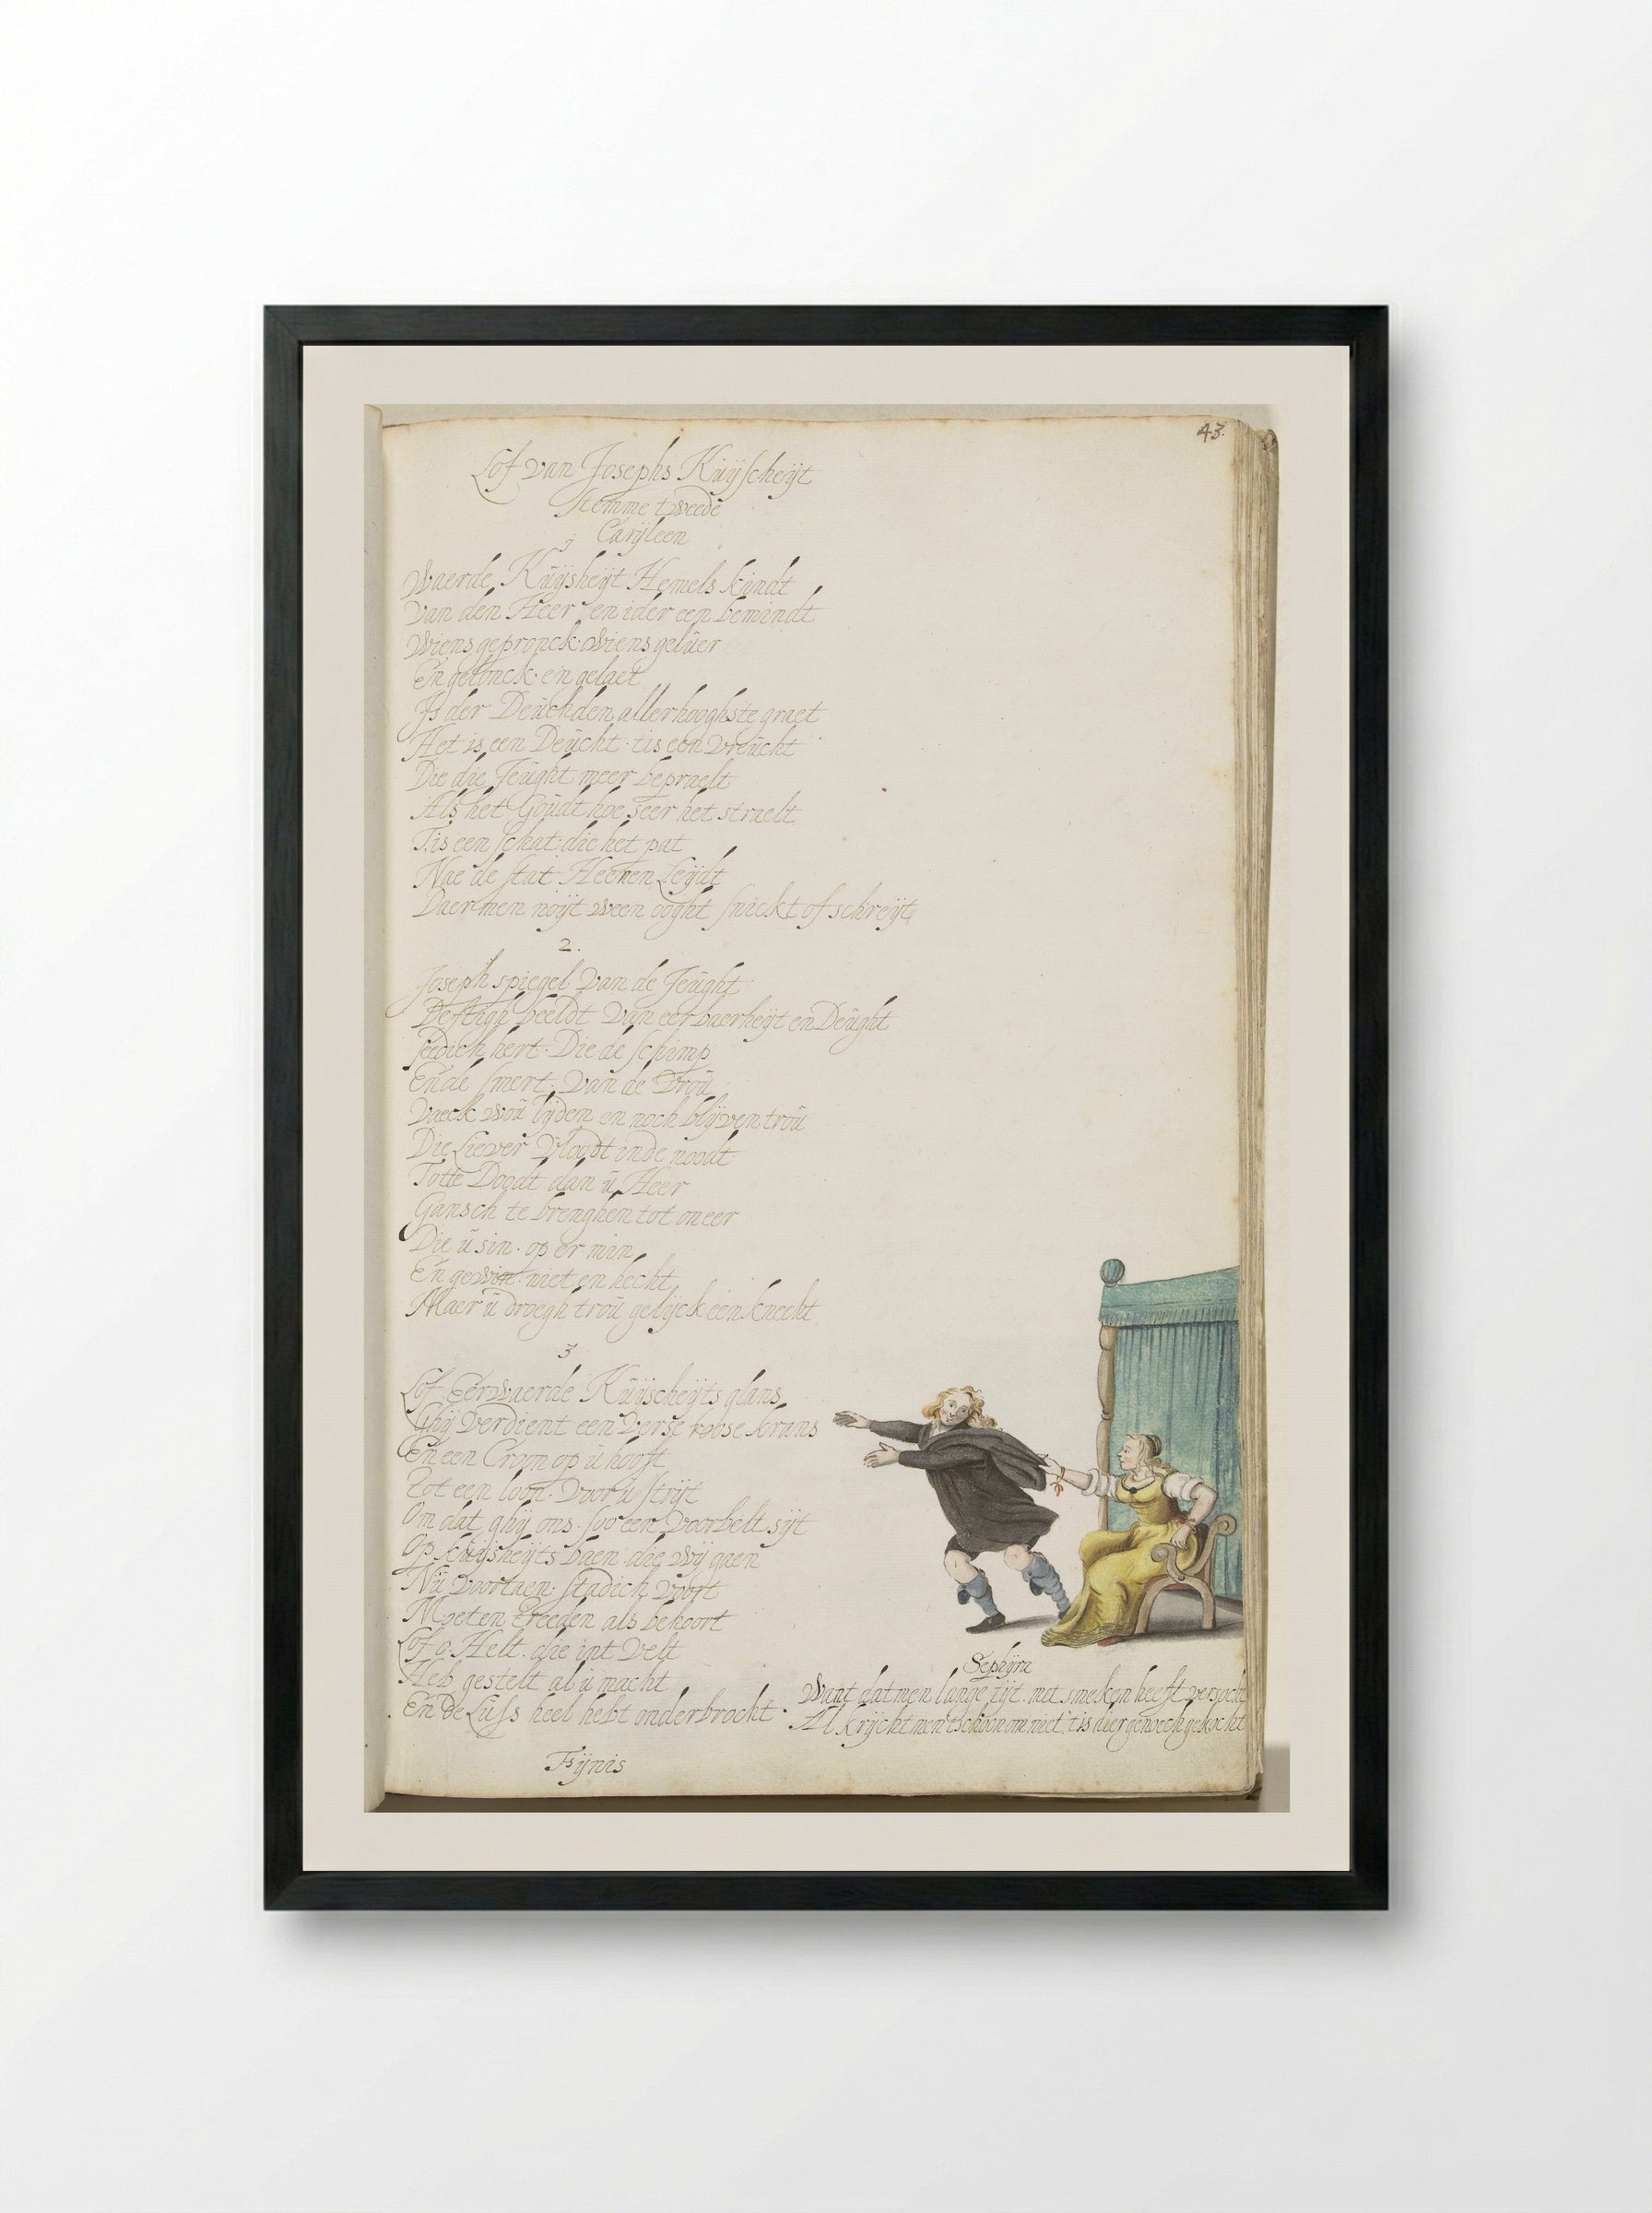 43.
Lof van Josephs Kuÿscheÿt
Stemme tweede
Carÿleen
1
Waerde Kuÿsheÿt Hemels kindt
Van den Heer en ider een bemindt
Wiens gepronck wiens geluer
En gelonck en gelaet
Is der Deuchden allerhooghste graet
Het is een Deucht tis een vreucht
Die die Jeught meer bepraelt
Als het Goudt hoe seer het straelt
Tis een schat die het pat
Nae de stat Heenen Leÿdt
Daermen noÿt ween ooght snickt of schreÿt
2.
Joseph spiegel van de Jeught
Deftigh beeldt van eerbaerheÿt en Deught
seedich hert Die de schimp
Ende smert van de vrou
Vaeck wou lÿden en noch blÿven trou
Die Liever vloodt inde noodt
Totte Doodt dan u Heer
Gansch te brenghen tot oneer
Die u sin op er min
En gewin niet en hecht
Maer u droegh trou gelÿck een knecht
3
Lof Eerwaerde Kuÿscheÿts glans
Ghÿ verdient een verse roose krans
En een Croon op u hooft
Tot een loon Voor u strÿt
Om dat ghÿ ons soo een voorbelt sÿt
Op kuÿsheÿts baen die wÿ gaen
Nu voortaen stadich voort
Moeten treeden als behoort
Lof o Helt die int velt
Heb gestelt al u macht
En de Luss heel hebt onderbrocht
Fÿnis
Sephÿra
Want datmen lange tÿt met smeken heeft versocht
Al krÿchtmen tschoon om niet tis dier genoech gekocht